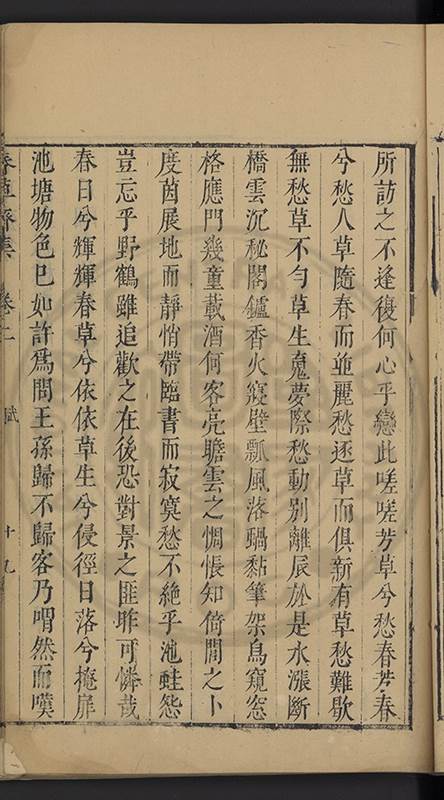 所訪之不逢復何心乎戀此嗟嗟芳草兮愁春芳春
兮愁人草隨春而並麗愁逐草而俱新有草愁難歇
無愁草不勻草生魂夢際愁動別離辰於是水漲斷
橋雲沉秘閣鑪香火寢壁瓢風落蝸黏筆架鳥窺窓
格應門幾童載酒何客亮瞻雲之惆悵知倚閭之卜
度茵展地而靜悄帶臨書而寂寞愁不絕乎池蛙怨
豈忘乎野鶴雖追歡之在後恐對景之匪昨可憐哉
春日兮輝輝春草兮依依草生兮侵徑日落兮掩扉
池塘物色已如許爲問王孫歸不歸客乃喟然而嘆
春草齋集 卷二 賦 十九